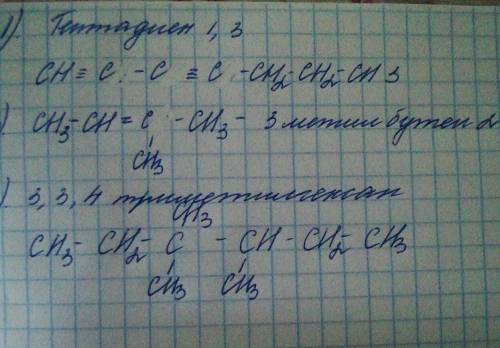 1). Гептадиен 1, 3
CH ≡ C - C ≡ C - CH2 - CH2 - CH3
). CH3 - CH = C - CH3 - 3 метил бутен 2
CH3
). 3, 3, 4 триметилгексан
CH3
CH3 - CH2 - C - CH - CH2 - CH3
CH3 CH3